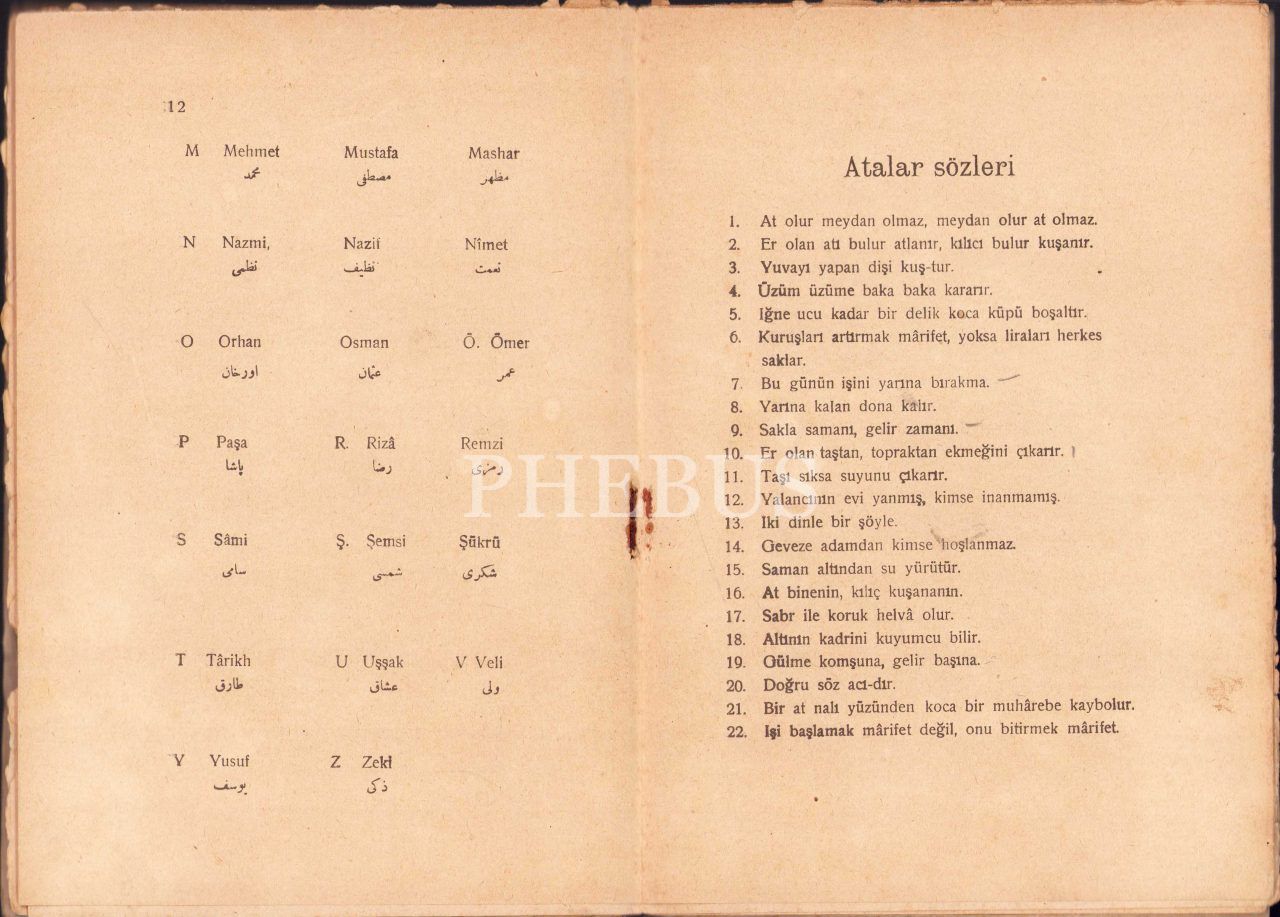 12
M Mehmet Mustafa Mashar
محمد مصطفى مظهر
N Nazmi, Nazif Nîmet
نظمى نظيف نعمت
O Orhan Osman Ö. Ömer
اورخان عثمان عمر
P Paşa R. Rizâ Remzi
پاشا رضا رمزى
S Sâmi Ş. Şemsi Şükrü
سامى شمسى شكرى
T Târikh U Uşşak V Veli
طارق عشاق ولى
Y Yusuf Z Zeki
يوسف ذكى
Atalar sözleri
1. At olur meydan olmaz, meydan olur at olmaz.
2. Er olan atı bulur atlanır, kılıcı bulur kuşanır.
3. Yuvayı yapan dişi kuş-tur.
4. Üzüm üzüme baka baka kararır.
5. Iğne ucu kadar bir delik koca küpü boşaltır.
6. Kuruşları artırmak mârifet, yoksa liraları herkes
saklar.
7. Bu günün işini yarına bırakma.
8. Yarına kalan dona kalır.
9. Sakla samanı, gelir zamanı.
10. Er olan taştan, topraktan ekmeğini çıkarır.
11. Taşı sıksa suyunu çıkarır.
12. Yalancının evi yanmış, kimse inanmamış.
13. Iki dinle bir şöyle.
14. Geveze adamdan kimse hoşlanmaz.
15. Saman altından su yürütür.
16. At binenin, kılıç kuşananın.
17. Sabr ile koruk helvâ olur.
18. Altının kadrini kuyumcu bilir.
19. Gülme komşuna, gelir başına.
20. Doğru söz acı-dır.
21. Bir at nalı yüzünden koca bir muhârebe kaybolur.
22. Işi başlamak mârifet değil, onu bitirmek mârifet.
PHEBUS